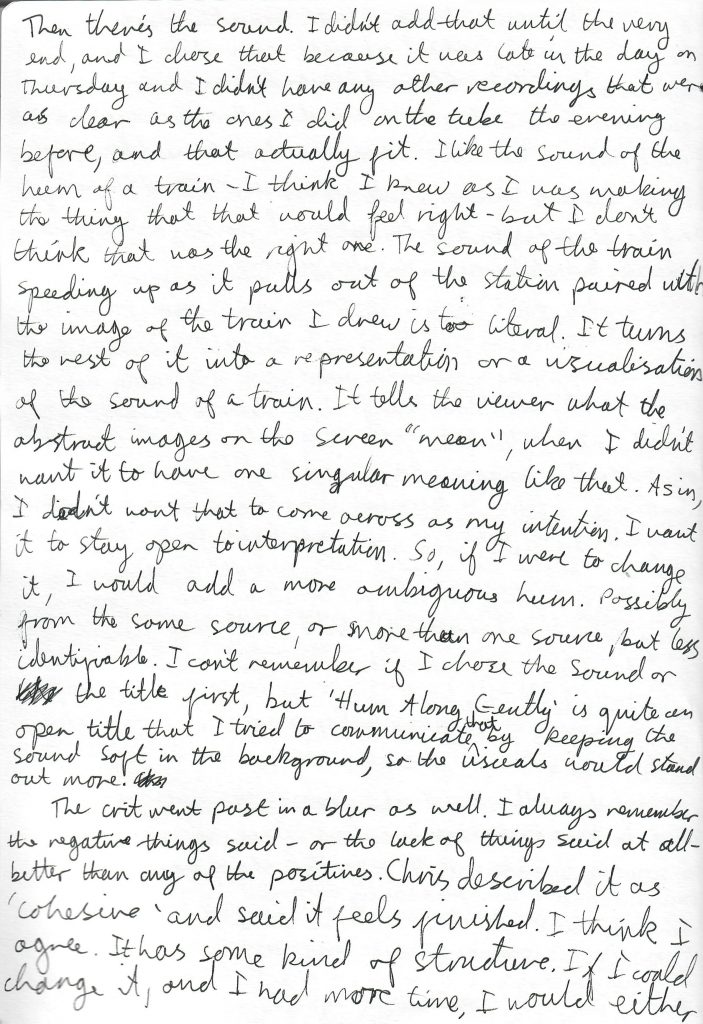 Then there's the sound. I didn't add that until the very
end, and I chose that because it was late in the day on
Thursday and I didn't have any other recordings that were
as clear as the ones I did on the tube the evening
before, and that actually fit. I like the sound of the
hum of a train - I think I knew as I was making
the thing that that would feel right - but I don't
think that was the right one. The sound of the train
speeding up as it pulls out of the station paired with
the image of the train I drew is too literal. It turns
the rest of it into a representation or a visualisation
of the sound of a train. It tells the viewer what the
abstract images on the screen "mean", when I didn't
want it to have one singular meaning like that. As in,
I didn't want that to come across as my intention. I want
it to stay open to interpretation. So, if I were to change
it, I would add a more ambiguous hum. Possibly
from the same source, or more than one source, but less
identifiable. I can't remember if I chose the sound or
the title first, but 'Hum Along Gently' is quite an
open title that I tried to communicate that by keeping the
sound soft in the background, so the visuals would stand
out more.
The crit went past in a blur as well. I always remember
the negative things said - or the lack of things said at all -
better than any of the positives. Chris described it as
'cohesive' and said it feels finished. I think I
agree. It has some kind of structure. If I could
change it, and I had more time, I would either